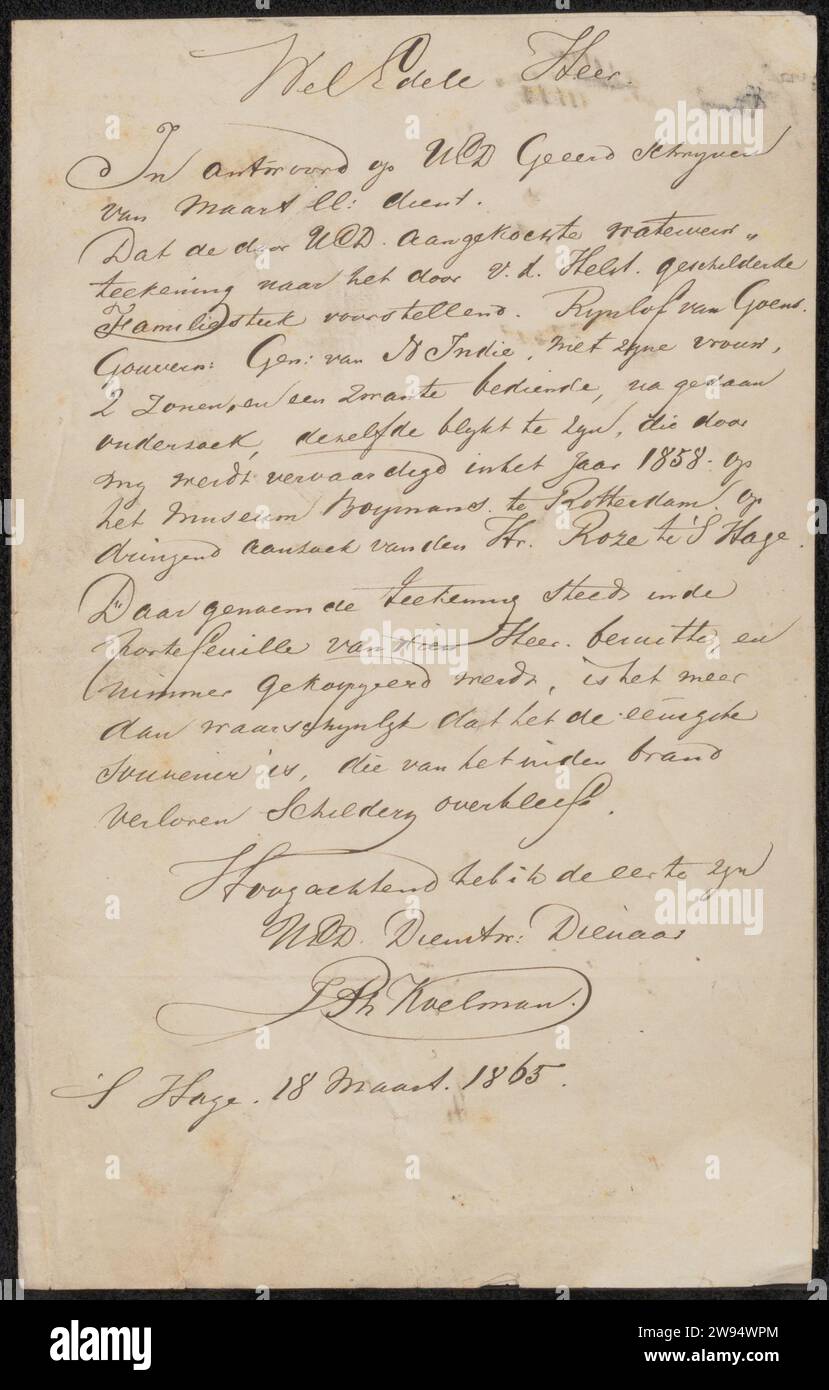 Wel Edele Heer.
In antwoord op UED Geeerd schryven
van Maart ll: dient.
Dat de door UED. aangekochte waterverw„
teekening naar het door v. d. Helst. geschilderde
Familiestuk voorstellend. Ryklof van Goens.
Gouvern: Gen: van N Indie, met zyne vrouw,
2 zonen, en een zwarte bediende, na gedaan
onderzoek, dezelfde blykt te zyn, die door
my werdt vervaardigd in het Jaar 1858. op
het Museum Boymans. te Rotterdam. op
dringend aanzoek van den Hr. Roze te 'S Hage.
Daar genoemde teekening steeds in de
portefeuille van dien Heer. berustte, en
nimmer gekopyeerd werdt, is het meer
dan waarschynlyk dat het de eenigste
souvenir is, die van het in den brand
verloren Schildery overbleef.
Hoogachtend heb ik de eer te zyn
UED. Dienstw: Dienaar
J Ph Koelman.
'S Hage. 18 Maart. 1865.
alamy
Image ID: 2W94WPM
www.alamy.com